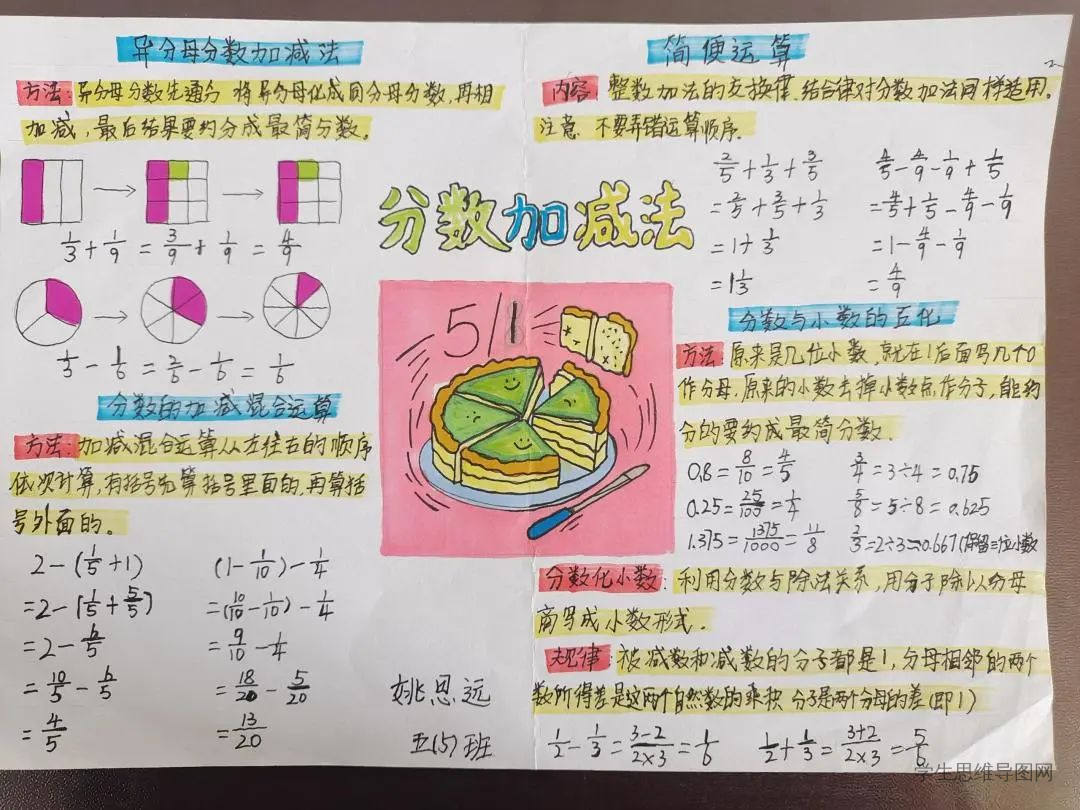 异分母分数加减法
方法:异分母分数先通分 将异分母化成同分母分数,再相
加减,最后结果要约分成最简分数。
1/3 + 1/9 = 3/9 + 1/9 = 4/9
1/3 - 1/6 = 2/6 - 1/6 = 1/6
分数的加减混合运算
方法:加减混合运算从左往右的顺序
依次计算,有括号先算括号里面的,再算括
号外面的。
2-(1/5+1)
=2-(1/5+5/5)
=2-6/5
=10/5-6/5
=4/5
(1-1/10)-1/4
=(10/10-1/10)-1/4
=9/10-1/4
=18/20-5/20
=13/20
分数加减法
5/1
姚思远
五(5)班
简便运算
内容:整数加法的交换律、结合律对分数加法同样适用。
注意 不要弄错运算顺序.
2/5+1/3+3/5
=2/5+3/5+1/3
=1+1/3
=1 1/3
4/5-4/9-1/9+1/5
=4/5+1/5-4/9-1/9
=1-4/9-1/9
=4/9
分数与小数的互化
方法:原来是几位小数,就在1后面写几个0
作分母,原来的小数去掉小数点作分子,能约
分的要约成最简分数.
0.8=8/10=4/5
0.25=25/100=1/4
1.375=1375/1000=11/8
3/4=3÷4=0.75
5/8=5÷8=0.625
2/3=2÷3≈0.667(保留三位小数
分数化小数:利用分数与除法关系,用分子除以分母
商写成小数形式.
规律:被减数和减数的分子都是1,分母相邻的两个
数所得差是这两个自然数的乘积 分子是两个分母的差(即1)
1/2-1/3=3-2/2×3=1/6
1/2+1/3=3+2/2×3=5/6
学生思维导图网